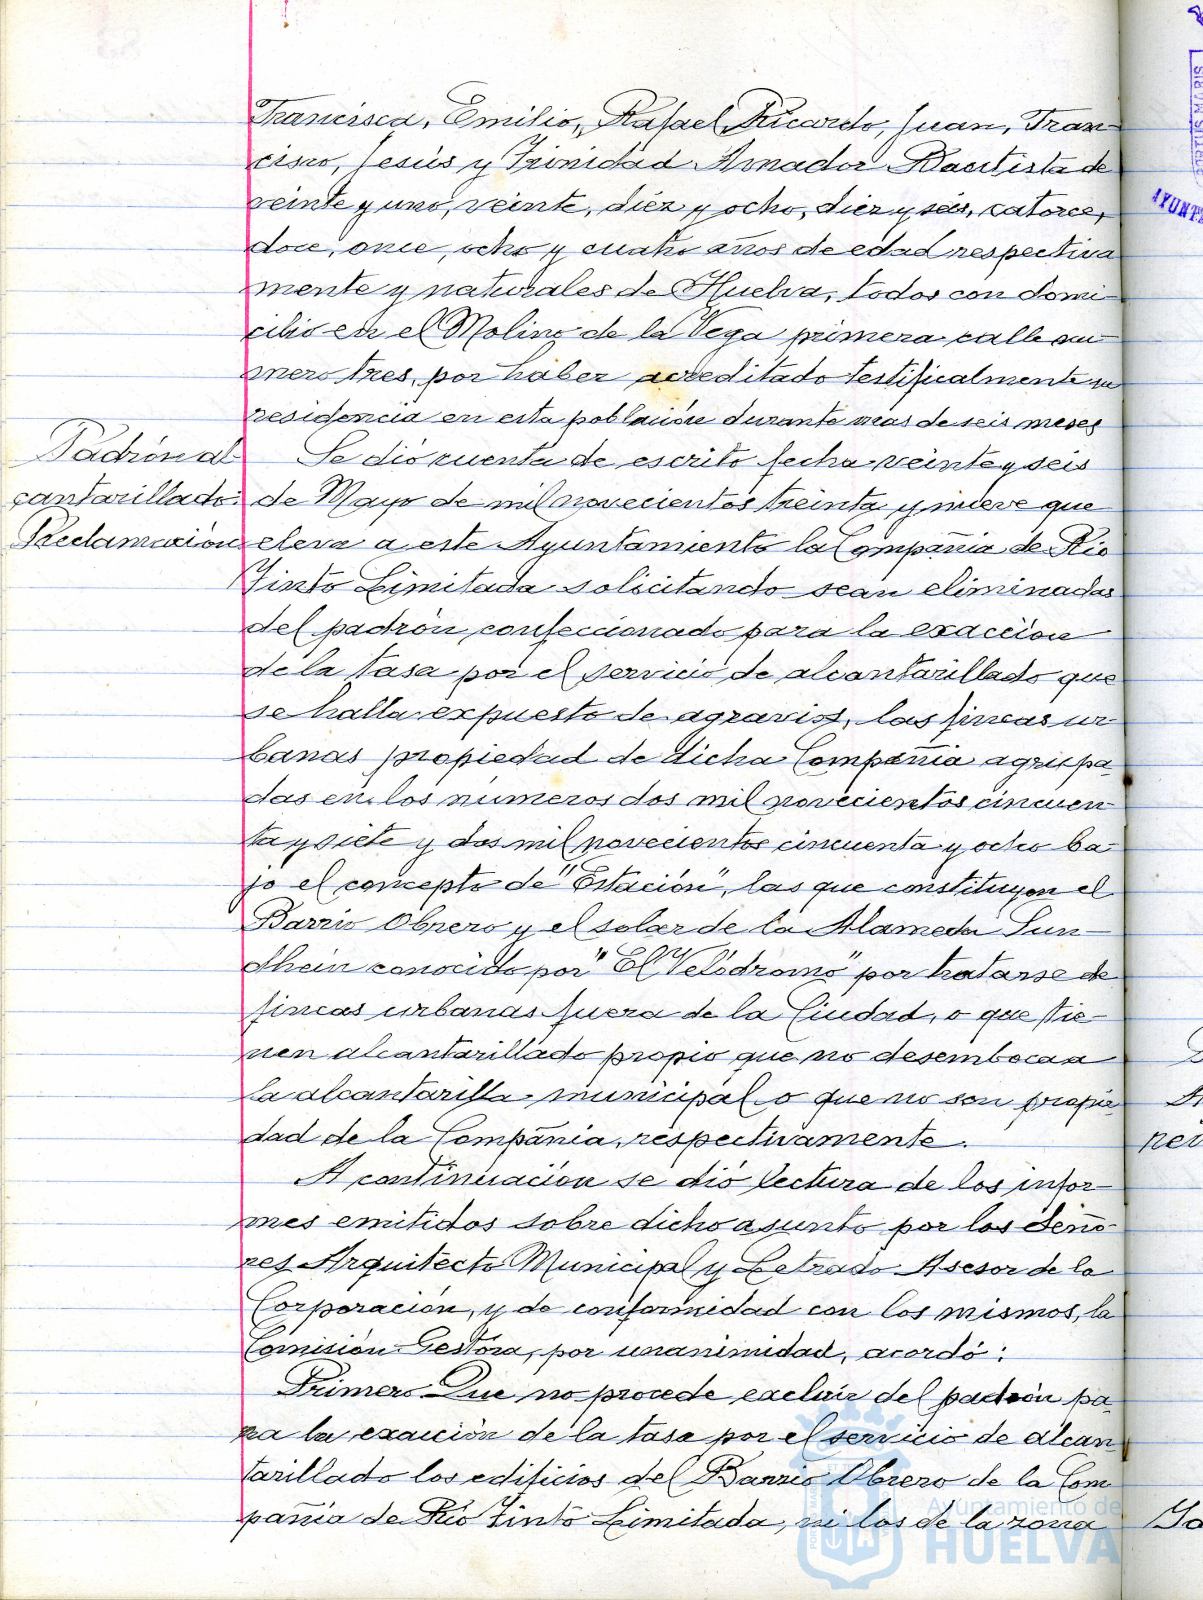 Francisca, Emilio, Rafael Ricardo, Juan, Fran-
cisco, Jesús y Trinidad Amador Bautista de
veinte y uno, veinte, diez y ocho, diez y seis, catorce,
doce, once, ocho y cuatro años de edad respectiva
mente y naturales de Huelva, todos con domi-
cilio en el Molino de la Vega primera calle nú-
mero tres, por haber acreditado testificalmente su
residencia en esta población durante más de seis meses
Padrón al
cantarillado.
Reclamación
Se dió cuenta de escrito fecha veinte y seis
de Mayo de mil novecientos treinta y nueve que
eleva a este Ayuntamiento la Compañia de Rio
Tinto Limitada solicitando sean eliminadas
del padrón confeccionado para la exacción
de la tasa por el servicio de alcantarillado que
se halla expuesto de agravios, las fincas ur-
banas propiedad de dicha Compañia agrupa-
das en los números dos mil novecientos cincuen-
ta y siete y dos mil novecientos cincuenta y ocho ba-
jo el concepto de "Estación", las que constituyen el
Barrio Obrero y el solar de la Alameda Sun-
dhein conocido por "El Velódromo" por tratarse de
fincas urbanas fuera de la Ciudad, o que tie-
nen alcantarillado propio que no desemboca a
la alcantarilla municipal o que no son propie
dad de la Compañia, respectivamente.
A continuación se dió lectura de los infor-
mes emitidos sobre dicho asunto por los Seño-
res Arquitecto Municipal y Letrado Asesor de la
Corporación, y de conformidad con los mismos, la
Comisión Gestora, por unanimidad, acordó:
Primero Que no procede excluir del padrón pa-
ra la exacción de la tasa por el servicio de alcan
tarillado los edificios del Barrio Obrero de la Com
pañia de Rio Tinto Limitada, ni los de la zona
Ayuntamiento de
HUELVA